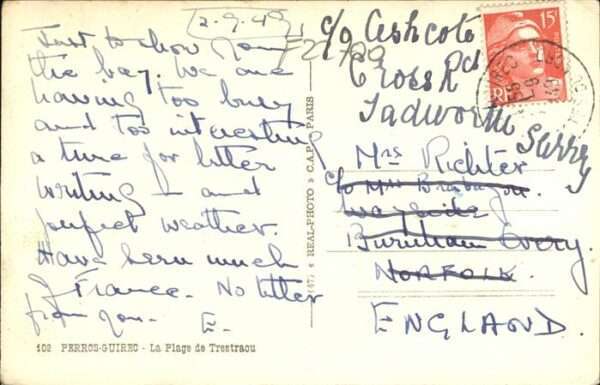 2.9.49
F2790
Just to show you
the bay. We are
having too busy
and too interesting
a time for letter
writing – and
perfect weather.
Have seen much
of France. No letter
from you. E.
102 PERROS-GUIREC - La Plage de Trestraou
"REAL-PHOTO" C.A.P. PARIS
c/o Ashcote
Cross Rd
Tadworth
Surrey
Mrs Richter
c/o
Wayside
Burnham Overy.
NORFOLK.
ENGLAND.
15F
RF